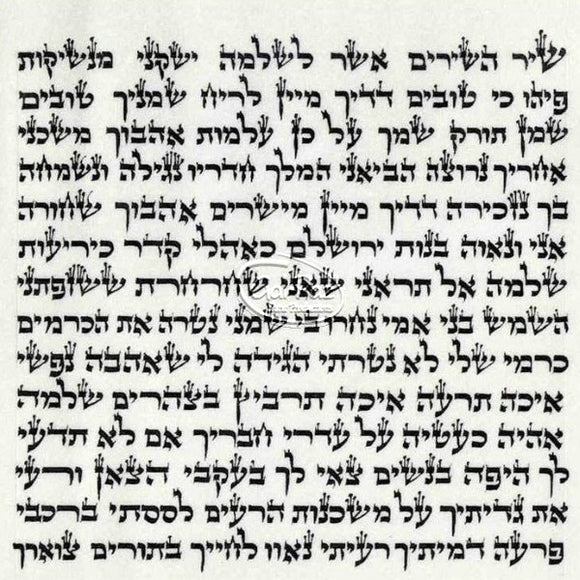 שיר השירים אשר לשלמה ישקני מנשיקות
פיהו כי טובים דדיך מיין לריח שמניך טובים
שמן תורק שמך על כן עלמות אהבוך משכני
אחריך נרוצה הביאני המלך חדריו נגילה ונשמחה
בך נזכירה דדיך מיין מישרים אהבוך שחורה
אני ונאוה בנות ירושלם כאהלי קדר כיריעות
שלמה אל תראני שאני שחרחרת ששזפתני
השמש בני אמי נחרו בי שמני נטרה את הכרמים
כרמי שלי לא נטרתי הגידה לי שאהבה נפשי
איכה תרעה איכה תרביץ בצהרים שלמה
אהיה כעטיה על עדרי חבריך אם לא תדעי
לך היפה בנשים צאי לך בעקבי הצאן ורעי
את גדיתיך על משכנות הרעים לססתי ברכבי
פרעה דמיתיך רעיתי נאוו לחייך בתורים צוארך